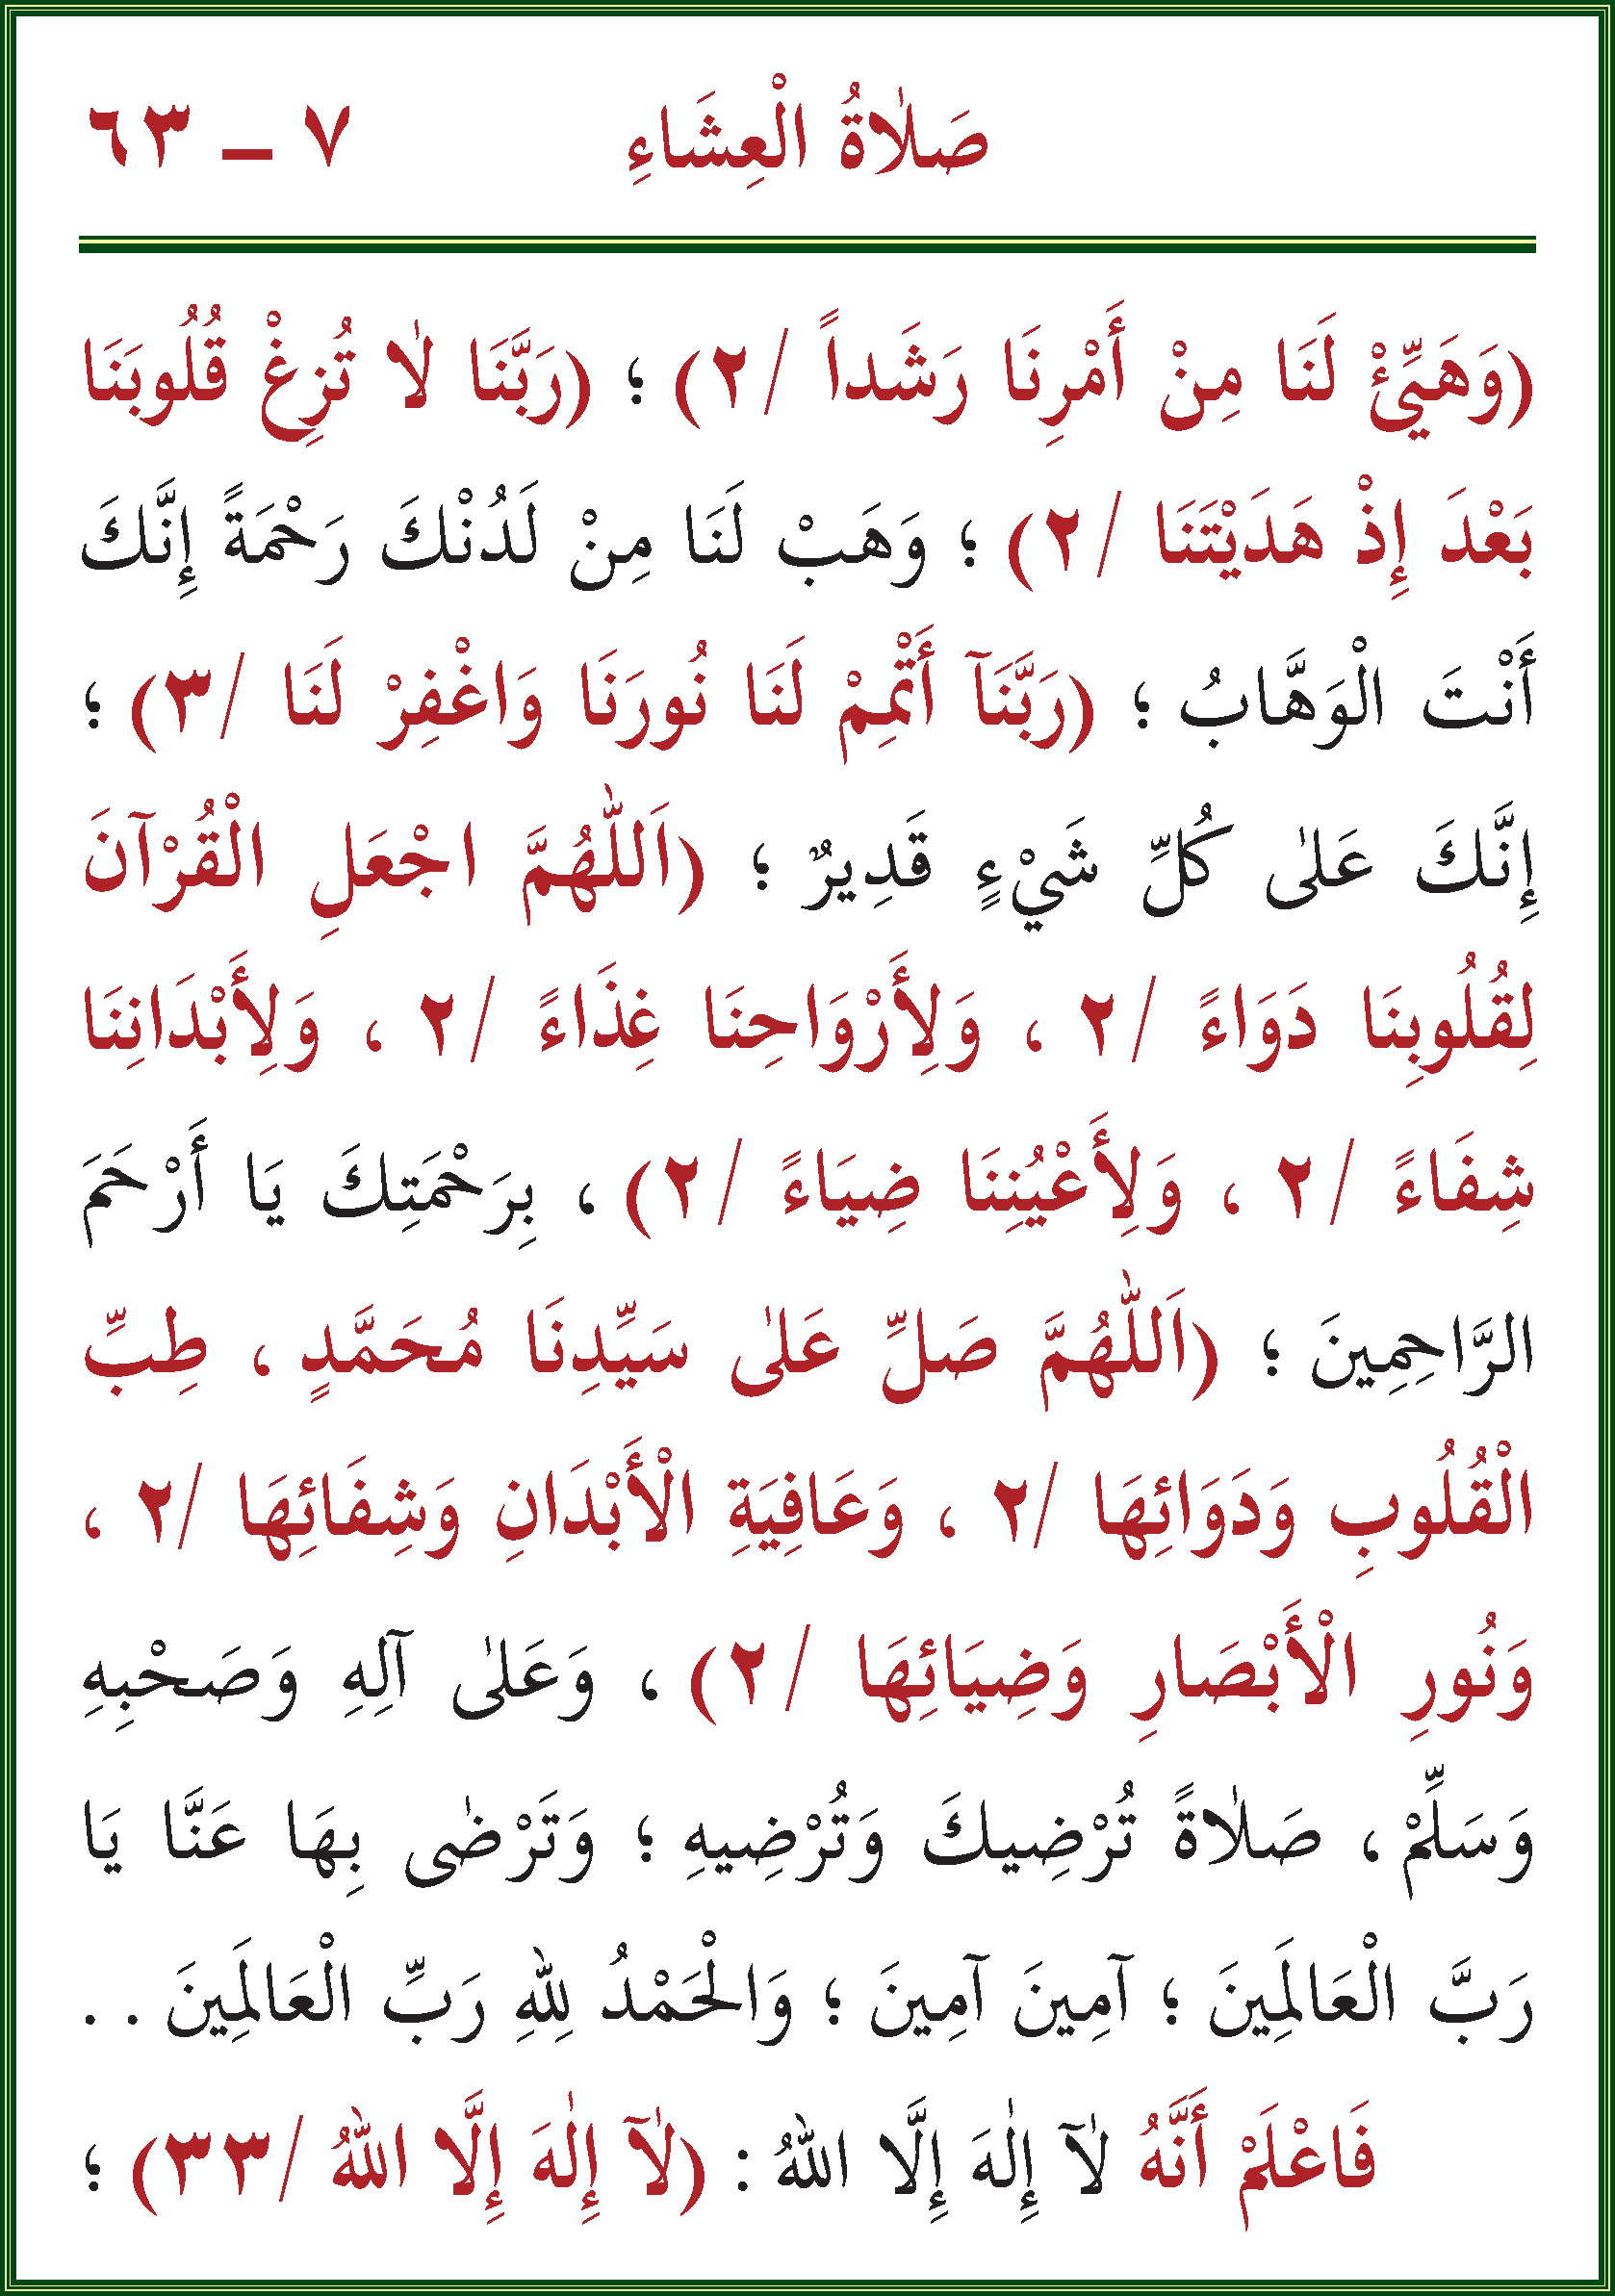 صَلٰاةُ الْعِشَاءِ ٧ ــ ٦٣
(وَهَيِّئْ لَنَا مِنْ أَمْرِنَا رَشَداً /٢) ؛ (رَبَّنَا لٰا تُزِغْ قُلُوبَنَا
بَعْدَ إِذْ هَدَيْتَنَا /٢) ؛ وَهَبْ لَنَا مِنْ لَدُنْكَ رَحْمَةً إِنَّكَ
أَنْتَ الْوَهَّابُ ؛ (رَبَّنَآ أَتْمِمْ لَنَا نُورَنَا وَاغْفِرْ لَنَا /٣) ؛
إِنَّكَ عَلىٰ كُلِّ شَيْءٍ قَدِيرٌ ؛ (اَللّٰهُمَّ اجْعَلِ الْقُرْآنَ
لِقُلُوبِنَا دَوَاءً /٢ ، وَلِأَرْوَاحِنَا غِذَاءً /٢ ، وَلِأَبْدَانِنَا
شِفَاءً /٢ ، وَلِأَعْيُنِنَا ضِيَاءً /٢) ، بِرَحْمَتِكَ يَا أَرْحَمَ
الرَّاحِمِينَ ؛ (اَللّٰهُمَّ صَلِّ عَلىٰ سَيِّدِنَا مُحَمَّدٍ ، طِبِّ
الْقُلُوبِ وَدَوَائِهَا /٢ ، وَعَافِيَةِ الْأَبْدَانِ وَشِفَائِهَا /٢ ،
وَنُورِ الْأَبْصَارِ وَضِيَائِهَا /٢) ، وَعَلىٰ آلِهِ وَصَحْبِهِ
وَسَلِّمْ ، صَلٰاةً تُرْضِيكَ وَتُرْضِيهِ ؛ وَتَرْضىٰ بِهَا عَنَّا يَا
رَبَّ الْعَالَمِينَ ؛ آمِينَ آمِينَ ؛ وَالْحَمْدُ لِلّٰهِ رَبِّ الْعَالَمِينَ . .
فَاعْلَمْ أَنَّهُ لٰآ إِلٰهَ إِلَّا اللّٰهُ : (لٰآ إِلٰهَ إِلَّا اللّٰهُ /٣٣) ؛